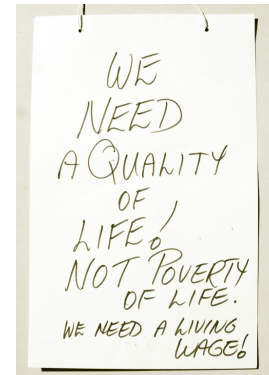 WE
NEED
A QUALITY
OF
LIFE!
NOT POVERTY
OF LIFE.
WE NEED A LIVING
WAGE!